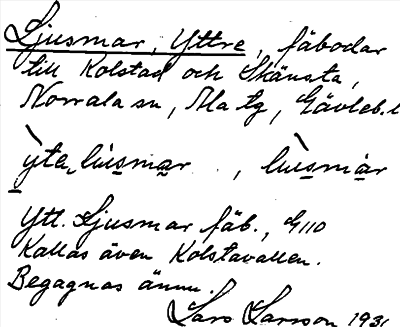 Ljusmar, Yttre, fäbodar
till Kolstad och Skänsta,
Norrala sn, Ala tg, Gävleb.l
ỳtə jùsmar , jùsmàr
Ytt. Ljusmar fäb., G110
Kallas även Kolstavallen.
Begagnas ännu.
Lars Larsson 1931